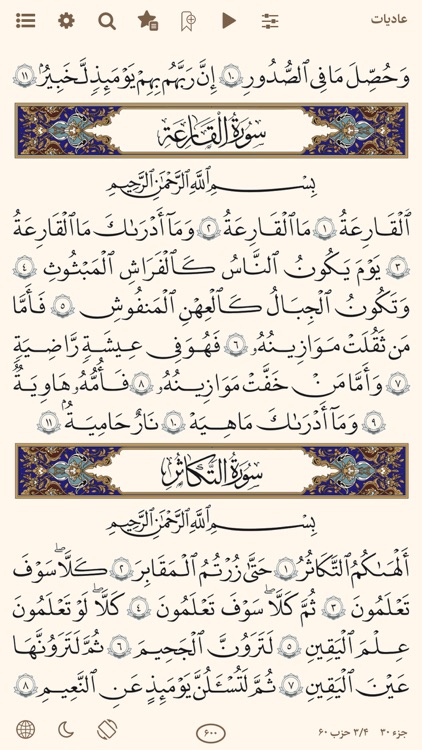 عادیات
وَحُصِّلَ مَا فِى ٱلصُّدُورِ ١٠ إِنَّ رَبَّهُم بِهِمْ يَوْمَئِذٍ لَّخَبِيرٌۢ ١١
سُورَةُ الْقَارِعَةِ
بِسْمِ ٱللَّهِ ٱلرَّحْمَٰنِ ٱلرَّحِيمِ
ٱلْقَارِعَةُ ١ مَا ٱلْقَارِعَةُ ٢ وَمَآ أَدْرَىٰكَ مَا ٱلْقَارِعَةُ
٣ يَوْمَ يَكُونُ ٱلنَّاسُ كَٱلْفَرَاشِ ٱلْمَبْثُوثِ ٤
وَتَكُونُ ٱلْجِبَالُ كَٱلْعِهْنِ ٱلْمَنفُوشِ ٥ فَأَمَّا
مَن ثَقُلَتْ مَوَٰزِينُهُۥ ٦ فَهُوَ فِى عِيشَةٍ رَّاضِيَةٍ
٧ وَأَمَّا مَنْ خَفَّتْ مَوَٰزِينُهُۥ ٨ فَأُمُّهُۥ هَاوِيَةٌ
٩ وَمَآ أَدْرَىٰكَ مَا هِيَهْ ١٠ نَارٌ حَامِيَةٌۢ ١١
سُورَةُ التَّكَاثُرِ
بِسْمِ ٱللَّهِ ٱلرَّحْمَٰنِ ٱلرَّحِيمِ
أَلْهَىٰكُمُ ٱلتَّكَاثُرُ ١ حَتَّىٰ زُرْتُمُ ٱلْمَقَابِرَ ٢ كَلَّا سَوْفَ
تَعْلَمُونَ ٣ ثُمَّ كَلَّا سَوْفَ تَعْلَمُونَ ٤ كَلَّا لَوْ تَعْلَمُونَ
عِلْمَ ٱلْيَقِينِ ٥ لَتَرَوُنَّ ٱلْجَحِيمَ ٦ ثُمَّ لَتَرَوُنَّهَا
عَيْنَ ٱلْيَقِينِ ٧ ثُمَّ لَتُسْـَٔلُنَّ يَوْمَئِذٍ عَنِ ٱلنَّعِيمِ ٨
جزء ۳۰ ۳/۴ حزب ۶۰
۶۰۰